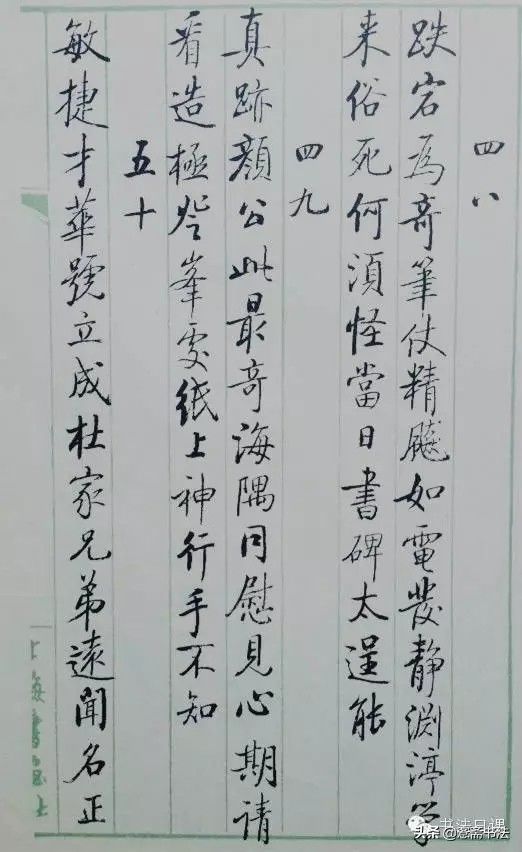 四八
跌宕為奇筆仗精飈如電發静渊渟学
来俗死何湏怪當日書碑太逞能
四九
真跡顏公此最奇海隅同慰見心期請
看造極登峯霎纸上神行手不知
五十
敏捷才華號立成杜家兄弟遠聞名正
书法日课
头条@惢斋书法